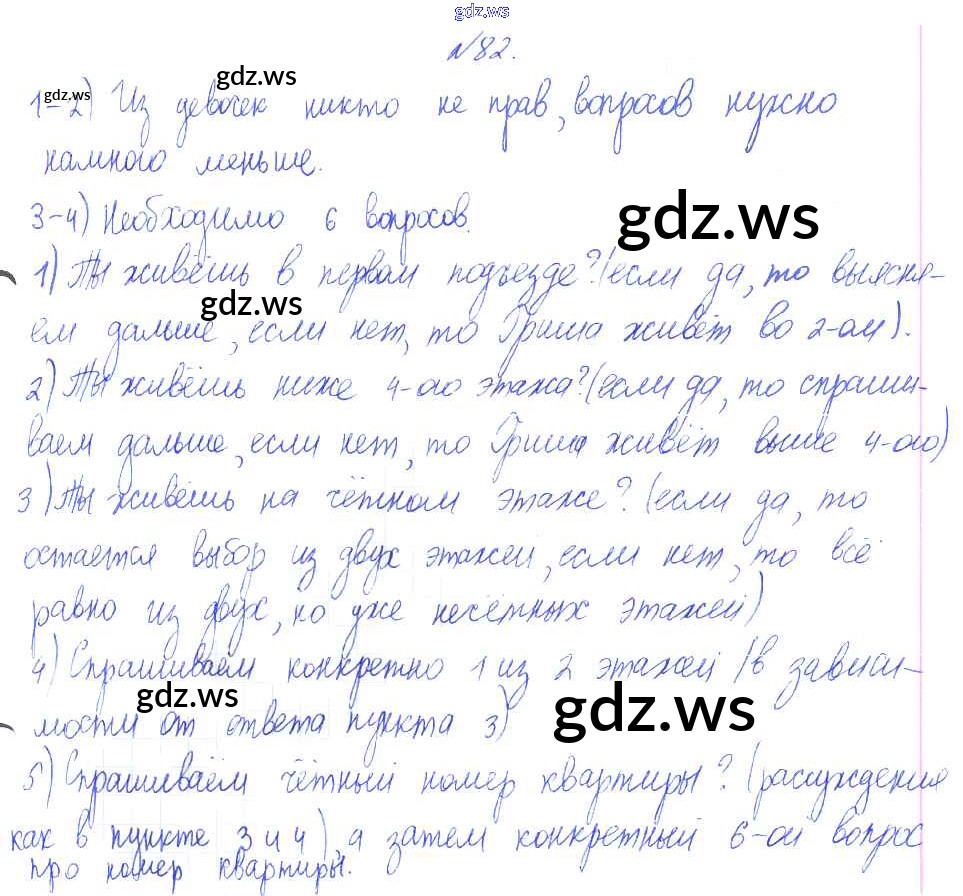 gdz.ws
№82.
gdz.ws
gdz.ws
1-2) Из девочек никто не прав, вопросов нужно
намного меньше.
3-4) Необходимо 6 вопросов.
gdz.ws
1) Ты живёшь в первом подъезде? (если да, то выясня-
gdz.ws
ем дальше, если нет, то Гриша живёт во 2-ом).
2) Ты живёшь ниже 4-ого этажа? (если да, то спраши-
ваем дальше, если нет, то Гриша живёт выше 4-ого)
3) Ты живёшь на чётном этаже? (если да, то
остается выбор из двух этажей, если нет, то всё
равно из двух, но уже несётных этажей)
4) Спрашиваем конкретно 1 из 2 этажей (в зависи-
gdz.ws
gdz.ws
мости от ответа пункта 3)
5) Спрашиваем чётный номер квартиры? (рассуждения
как в пункте 3 и 4), а затем конкретный 6-ой вопрос
про номер квартиры.